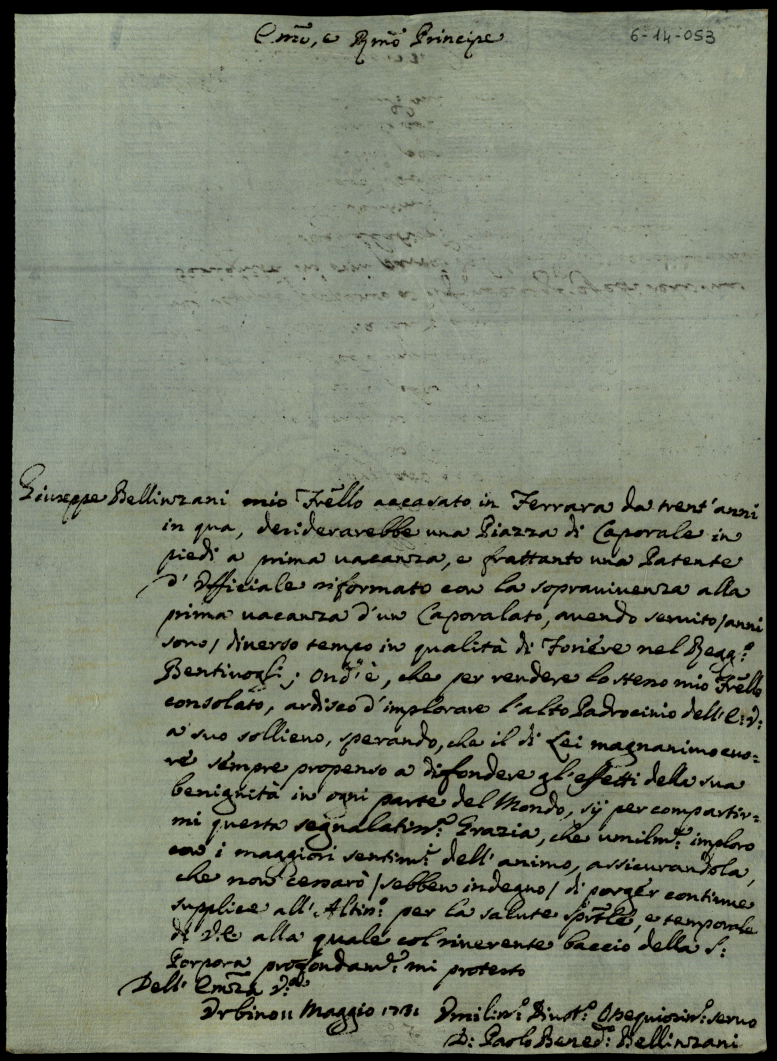 Em̃o, e Rm̃o Principe
6-14-053
Giuseppe Bellinzani mio Fr̃ello accasato in Ferrara da trent'anni
in qua, desiderarebbe una Piazza di Caporale in
piedi a prima vacanza, e frattanto una Patente
d'Officiale riformato con la sopravivenza alla
prima vacanza d'un Caporalato, avendo servito /anni
sono/ diverso tempo in qualità di Foriére nel Regg.º
Bentivogli; Ond'è, che per rendere lo stesso mio Fr̃ello
consolato, ardisco d'implorare l'alto Padrocinio dell'E: V:
a suo sollievo, sperando, che il di Lei magnanimo cuo=
re sempre propenso a difondere gl'effetti della sua
benignità in ogni parte del Mondo, sij per compartir=
mi questa segnalatiss.ª Grazia, che umilm.te imploro
con i maggiori sentim.ti dell'animo, assicurandola,
che non cessarò /sebben indegno/ di porger continue
supplice all'Altiss.º per la salute sp̃rle, e temporale
di V.E. alla quale col riverente baccio della S:
Porpora profondam.te mi protesto
Dell'Em̃za V.ra
Urbino 11 Maggio 1731 Umiliss.º Divot.º Ossequiosiss.º servo
D: Paolo Bened.º Bellinzani